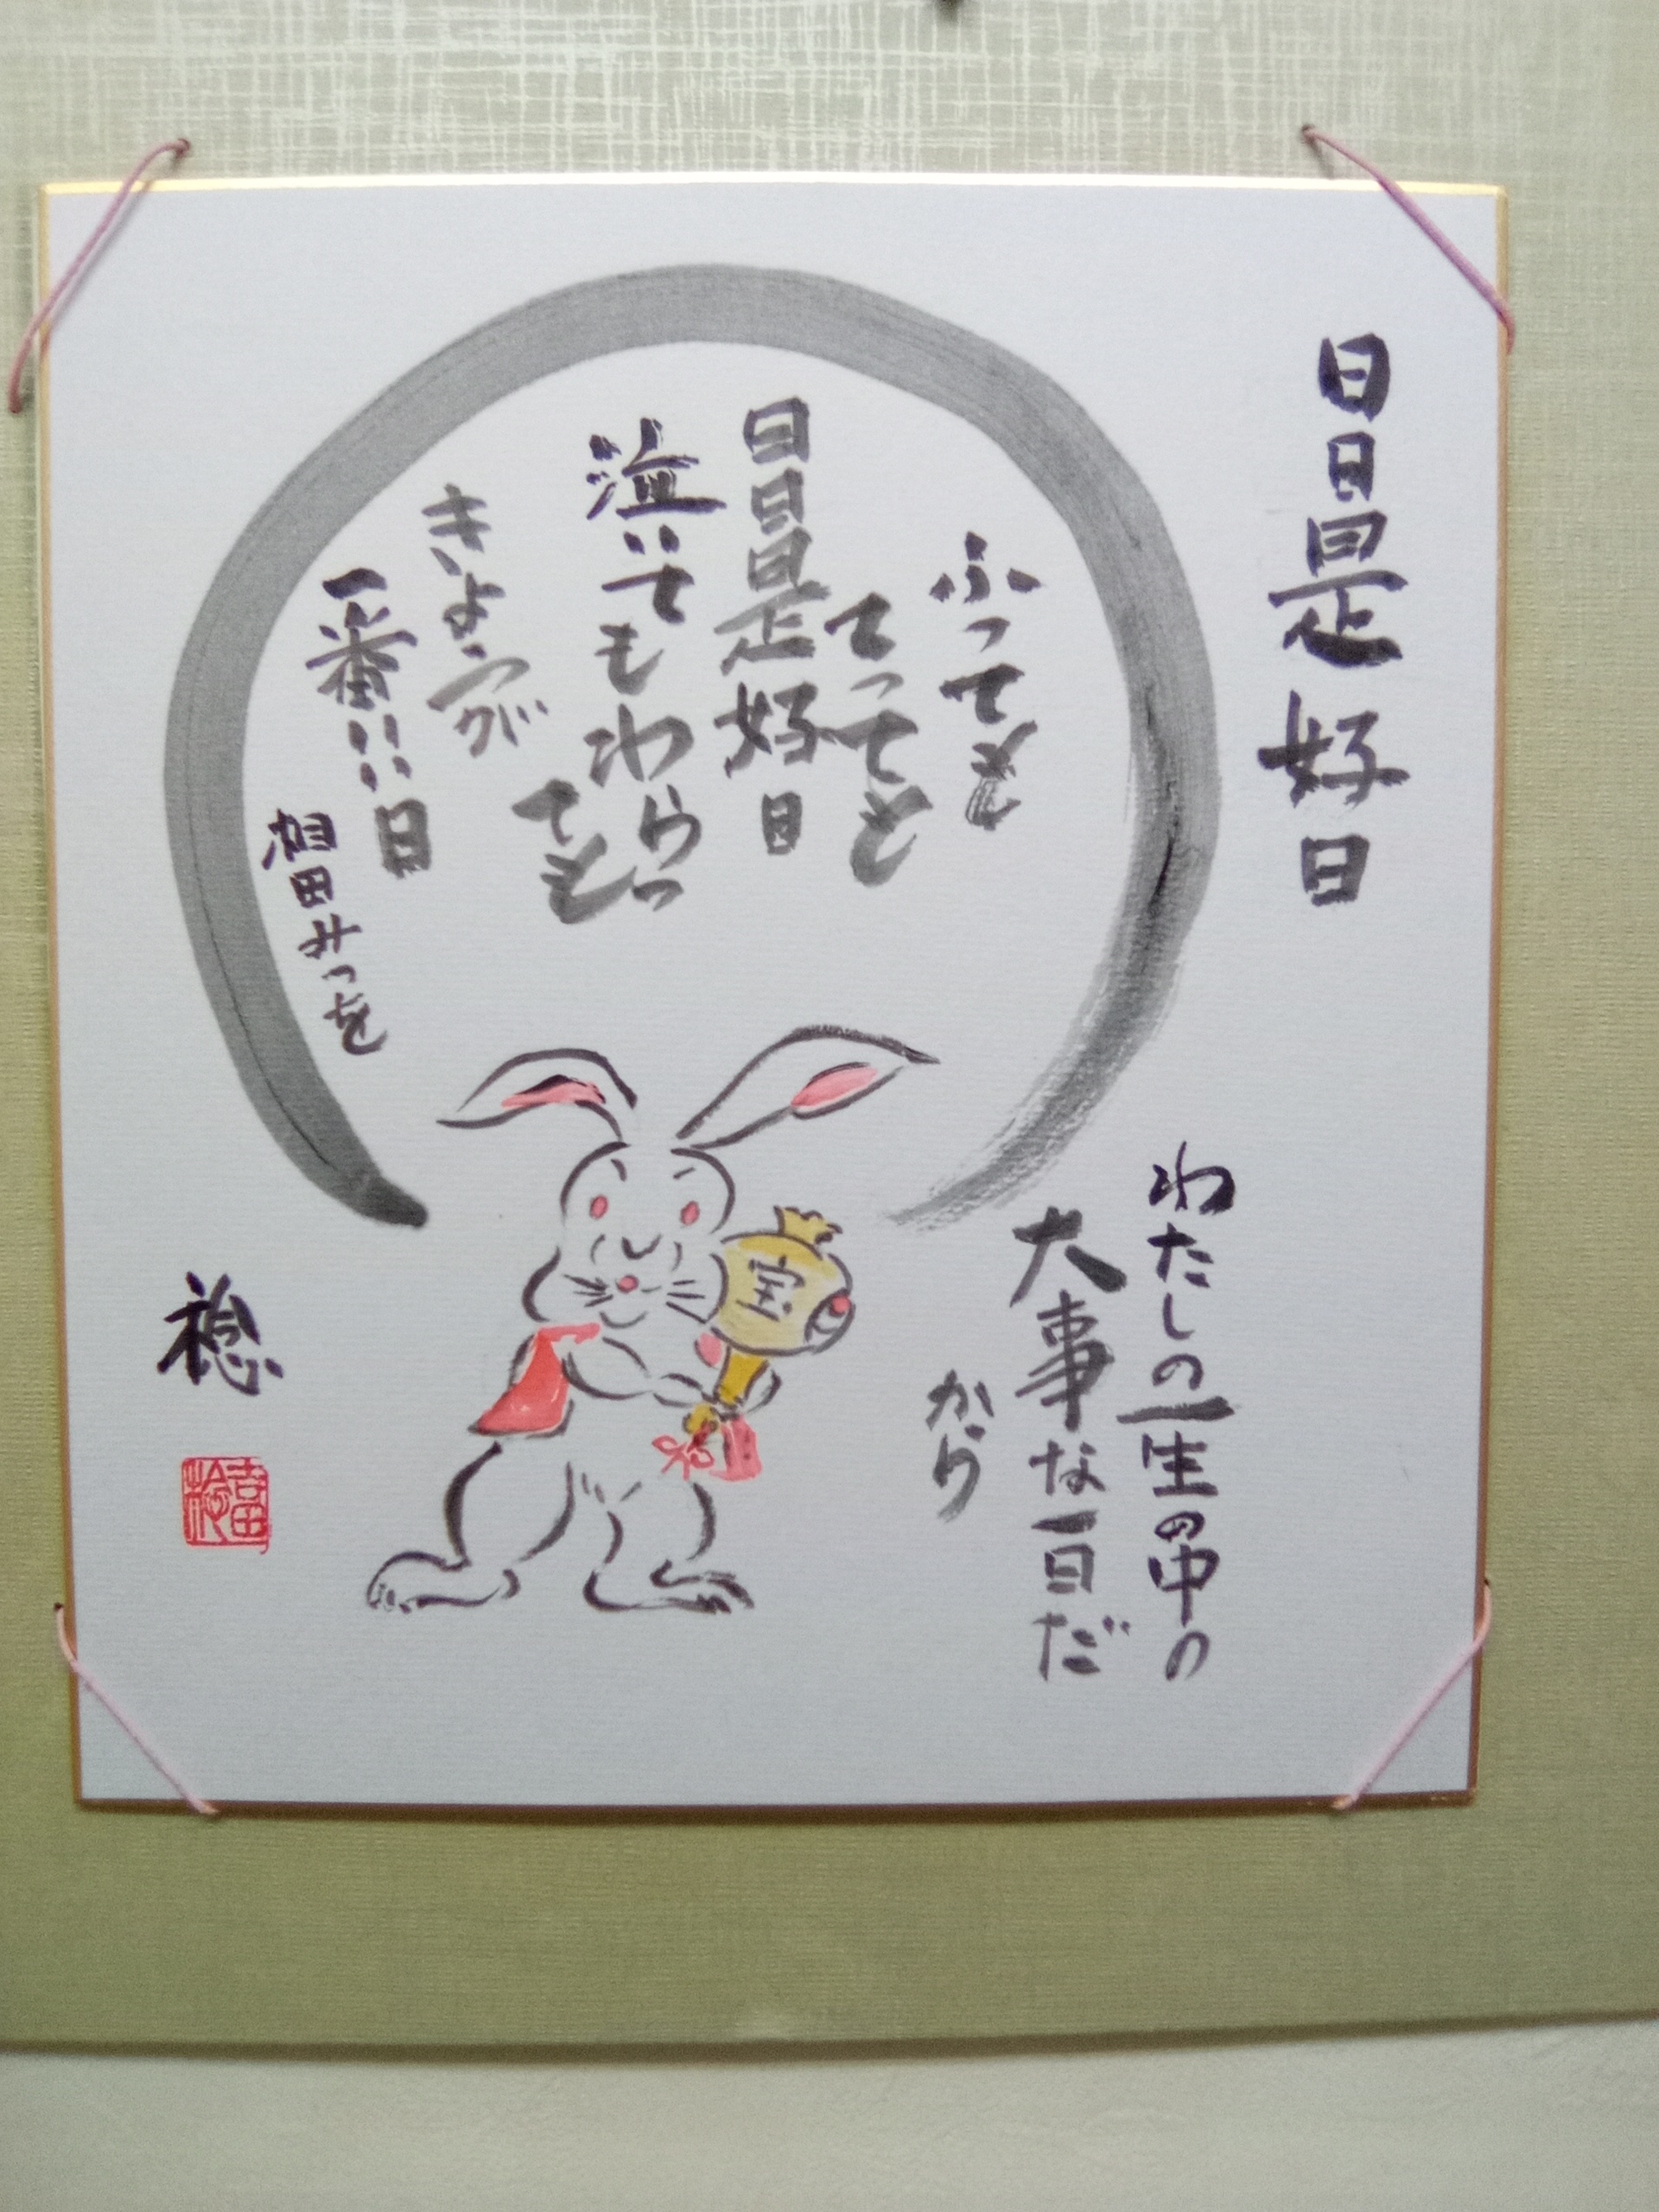 日日是好日
ふっても
てっても
日日是好日
泣いてもわらっ
ても
きょうが
一番いい日
相田みつを
わたしの一生の中の
大事な一日だ
から
宝
稔